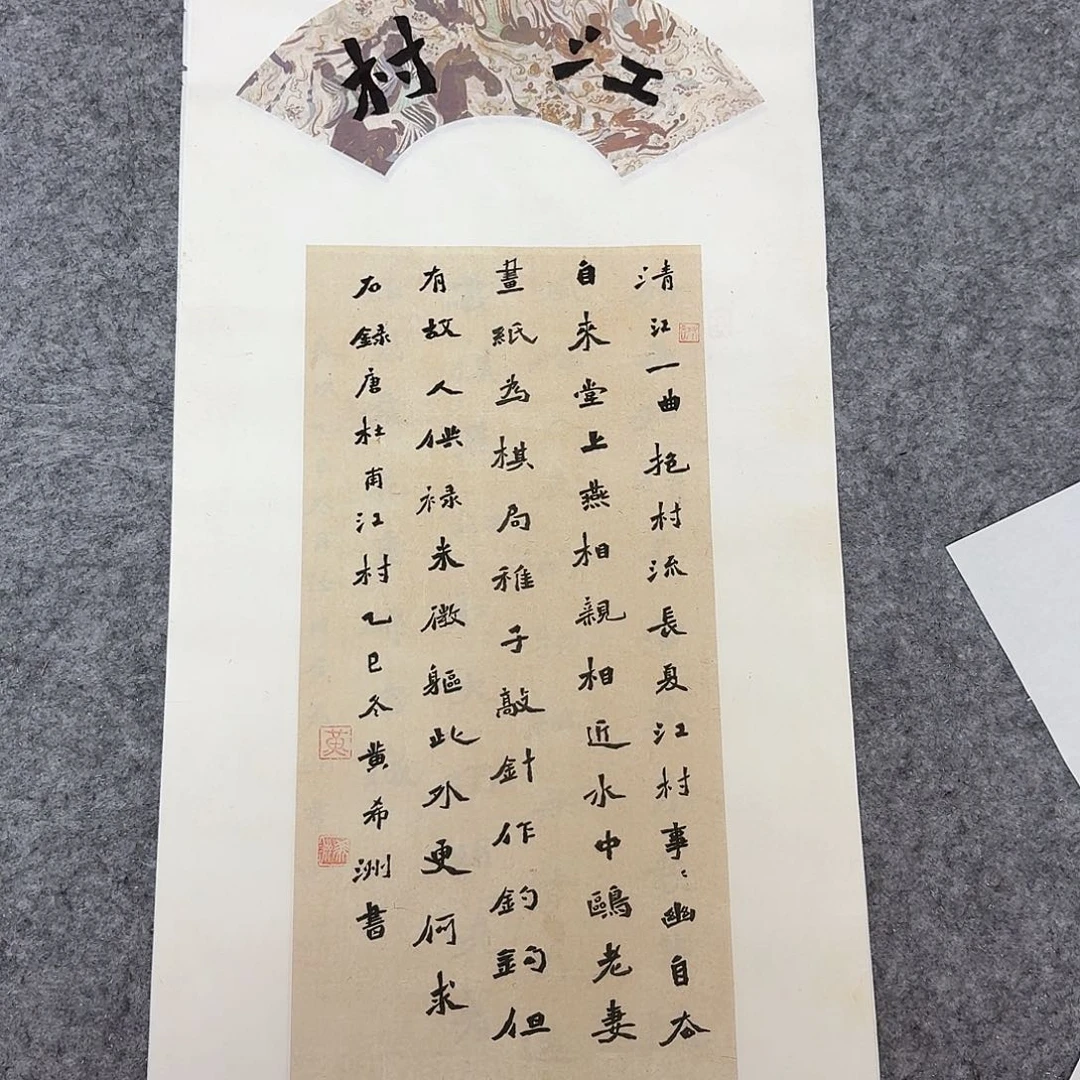 江村
清江一曲抱村流長夏江村事〻幽自去
自來堂上燕相親相近水中鷗老妻
畫紙為棋局稚子敲針作釣鈎但
有故人供禄米微軀此外更何求
右録唐杜甫江村乙巳冬黄希洲書
黄